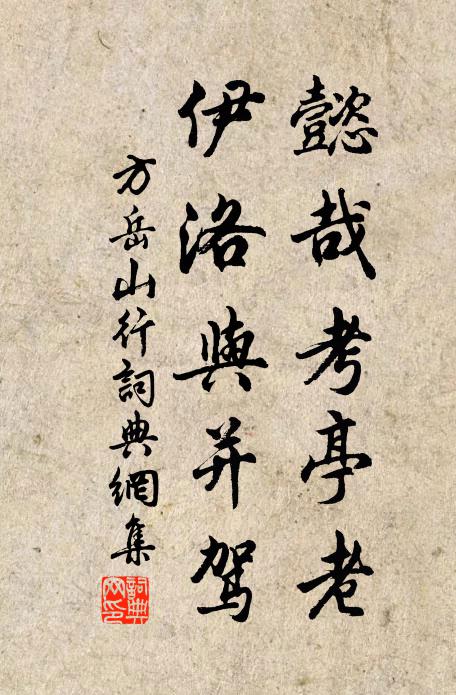 懿哉考亭老
伊洛與并駕
方岳山行詞典網集
詞典
网印